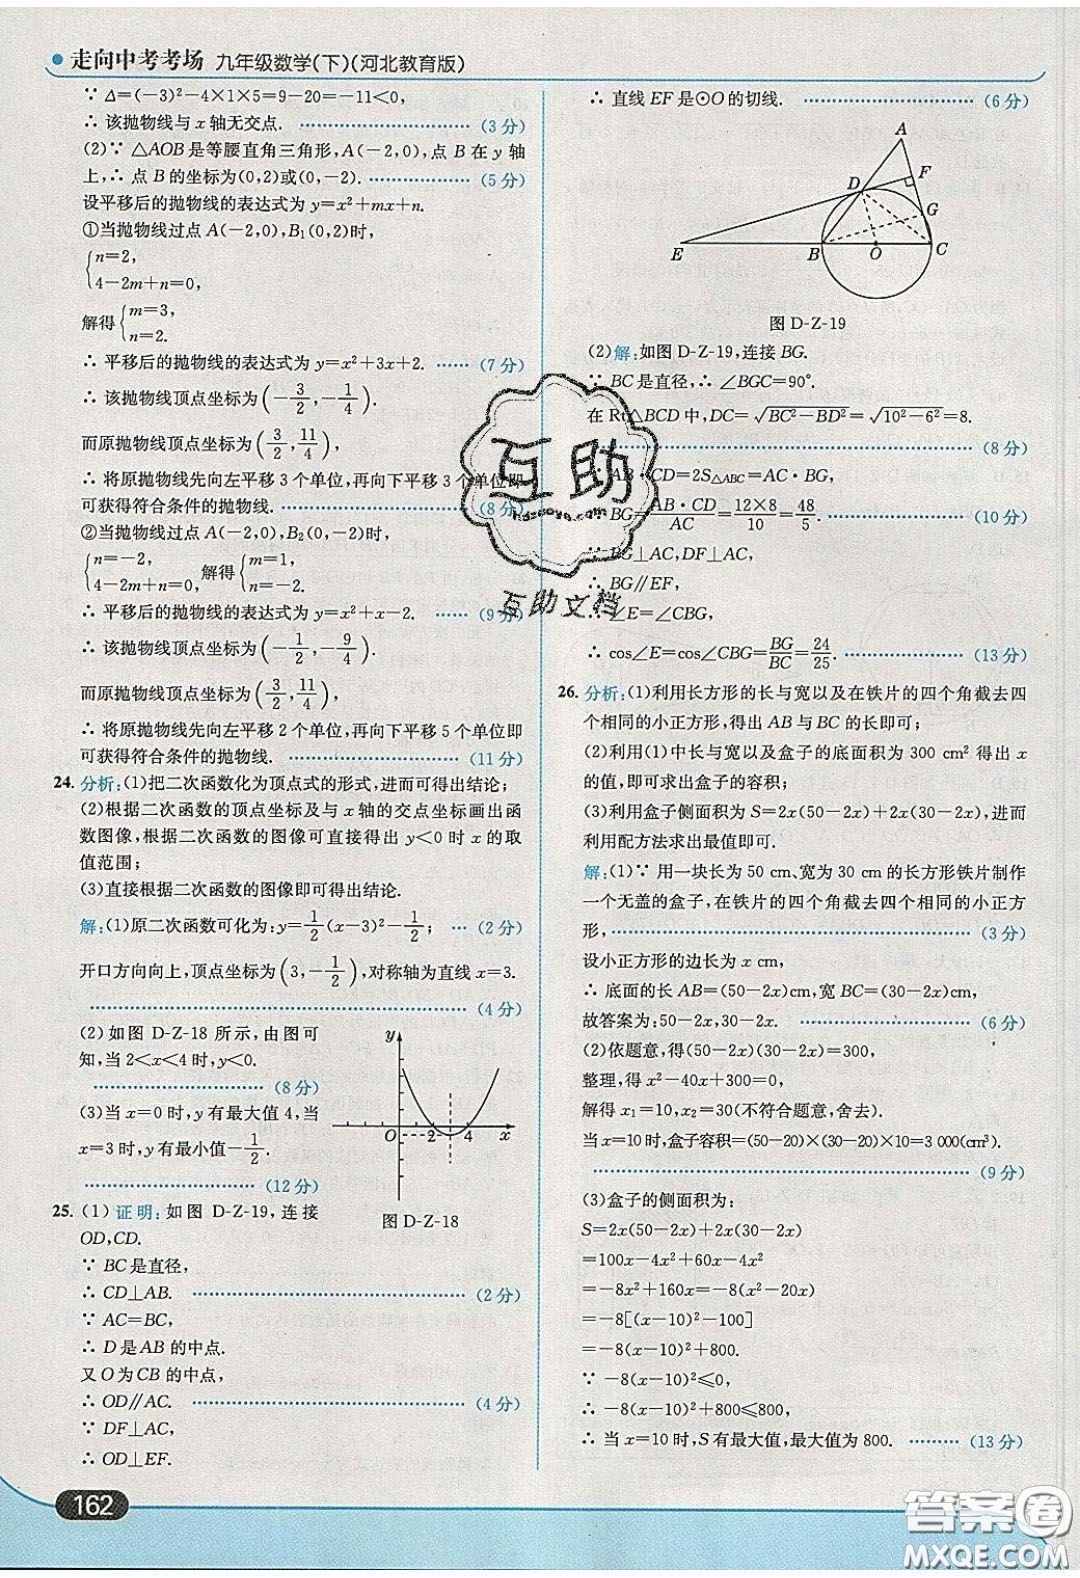 走向中考考场 九年级数学(下)(河北教育版)
∵ Δ=(-3)²-4×1×5=9-20=-11<0,
∴ 该抛物线与 x 轴无交点. (3分)
(2)∵ △AOB是等腰直角三角形,A(-2,0),点 B 在 y 轴
上,∴ 点 B 的坐标为(0,2)或(0,-2). (5分)
设平移后的抛物线的表达式为 y=x²+mx+n.
①当抛物线过点 A(-2,0),B₁(0,2)时,
{n=2,
4-2m+n=0,
解得{m=3,
n=2.
∴ 平移后的抛物线的表达式为 y=x²+3x+2. (7分)
∴ 该抛物线顶点坐标为(-3/2,-1/4).
而原抛物线顶点坐标为(3/2,11/4),
∴ 将原抛物线先向左平移 3 个单位,再向下平移 3 个单位即
可获得符合条件的抛物线. (8分)
②当抛物线过点 A(-2,0),B₂(0,-2)时,
{n=-2,
4-2m+n=0, 解得{m=1,
n=-2.
∴ 平移后的抛物线的表达式为 y=x²+x-2. (9分)
∴ 该抛物线顶点坐标为(-1/2,-9/4).
而原抛物线顶点坐标为(3/2,11/4),
∴ 将原抛物线先向左平移 2 个单位,再向下平移 5 个单位即
可获得符合条件的抛物线. (11分)
24. 分析:(1)把二次函数化为顶点式的形式,进而可得出结论;
(2)根据二次函数的顶点坐标及与 x 轴的交点坐标画出函
数图像,根据二次函数的图像可直接得出 y<0 时 x 的取
值范围;
(3)直接根据二次函数的图像即可得出结论.
解:(1)原二次函数可化为:y=1/2(x-3)²-1/2; (2分)
开口方向向上,顶点坐标为(3,-1/2),对称轴为直线 x=3.
(4分)
(2)如图 D-Z-18 所示,由图可
知,当 2<x<4 时,y<0.
(8分)
(3)当 x=0 时,y 有最大值 4,当
x=3 时,y 有最小值-1/2.
(12分)
y
O 2 4 x
图 D-Z-18
25. (1)证明:如图 D-Z-19,连接
OD,CD.
∵ BC是直径,
∴ CD⊥AB. (2分)
∵ AC=BC,
∴ D是AB 的中点.
又 O为CB 的中点,
∴ OD∥AC. (4分)
∵ DF⊥AC,
∴ OD⊥EF.
162
∴ 直线 EF 是⊙O 的切线. (6分)
A
F
D
G
E B O C
图 D-Z-19
(2)解:如图 D-Z-19,连接 BG.
∵ BC是直径,∴ ∠BGC=90°.
在 Rt△BCD 中,DC=√(BC²-BD²)=√(10²-6²)=8.
(8分)
AB·CD=2S△ABC=AC·BG,
BG=AB·CD/AC=12×8/10=48/5. (10分)
∵ BG⊥AC,DF⊥AC,
∴ BG∥EF,
∴ ∠E=∠CBG,
∴ cos∠E=cos∠CBG=BG/BC=24/25. (13分)
26. 分析:(1)利用长方形的长与宽以及在铁片的四个角截去四
个相同的小正方形,得出 AB 与 BC 的长即可;
(2)利用(1)中长与宽以及盒子的底面积为 300 cm² 得出 x
的值,即可求出盒子的容积;
(3)利用盒子侧面积为 S=2x(50-2x)+2x(30-2x),进而
利用配方法求出最值即可.
解:(1)∵ 用一块长为 50 cm、宽为 30 cm 的长方形铁片制作
一个无盖的盒子,在铁片的四个角截去四个相同的小正方
形, (3分)
设小正方形的边长为 x cm,
∴ 底面的长 AB=(50-2x)cm,宽 BC=(30-2x)cm,
故答案为:50-2x,30-2x. (6分)
(2)依题意,得(50-2x)(30-2x)=300,
整理,得 x²-40x+300=0,
解得 x₁=10,x₂=30(不符合题意,舍去).
当 x=10 时,盒子容积=(50-20)×(30-20)×10=3 000(cm³).
(9分)
(3)盒子的侧面积为:
S=2x(50-2x)+2x(30-2x)
=100x-4x²+60x-4x²
=-8x²+160x=-8(x²-20x)
=-8[(x-10)²-100]
=-8(x-10)²+800.
∵ -8(x-10)²≤0,
∴ -8(x-10)²+800≤800,
∴ 当 x=10 时,S 有最大值,最大值为 800. (13分)
互助
hdzuoye.com
互助文档
答案圈
MXQE.COM